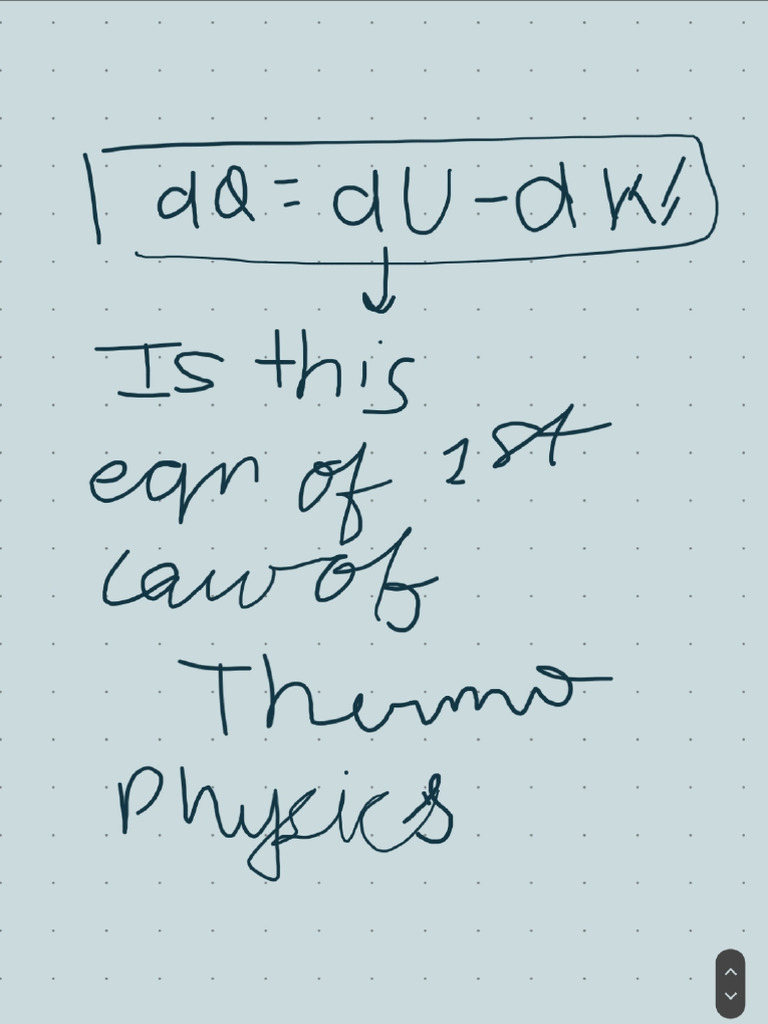 dQ = dU - dW
Is this
eqn of 1st
law of
Thermo
Physics